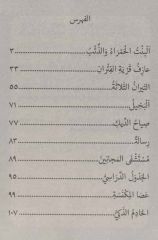 الفهرس
البنت الحمراء والذئب ٣
عازف قرية الفئران ٣٣
الثيران الثلاثة ٥٥
البخيل ٧١
صياح الديك ٧٧
رسالة ٨٣
مستشفى المجانين ٨٩
الجدول الدراسي ٩٥
عصا المكنسة ٩٩
الخادم الذكي ١٠٧